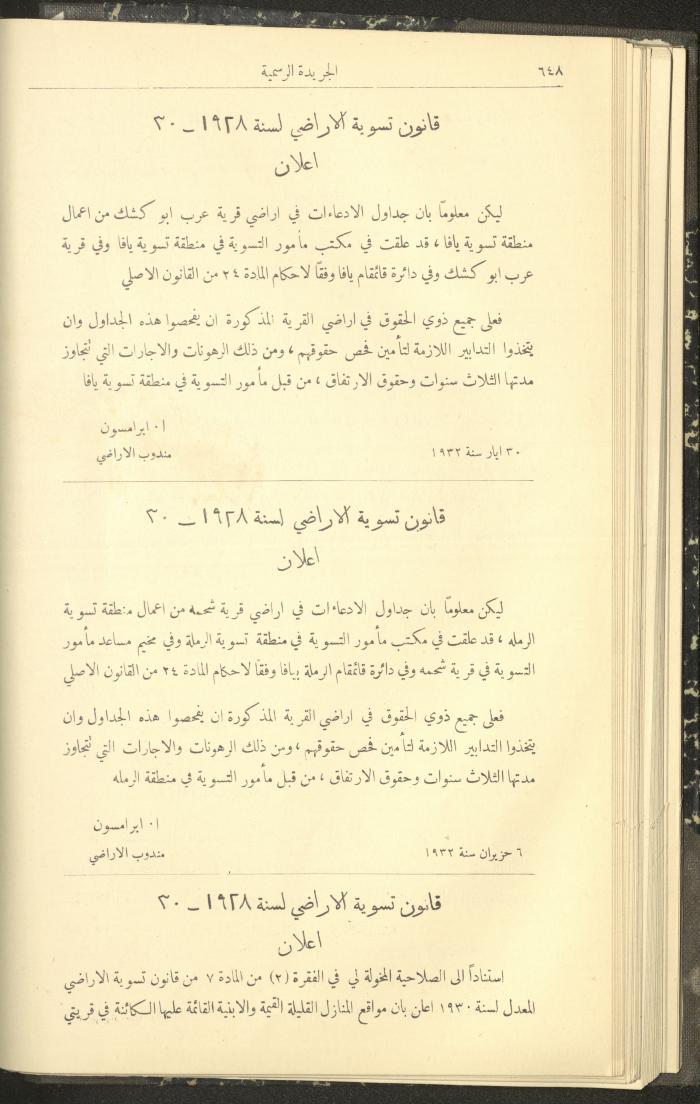 ٦٤٨ الجريدة الرسمية
قانون تسوية الاراضي لسنة ١٩٢٨ – ٣٠
اعلان
ليكن معلومًا بان جداول الادعاءات في اراضي قرية عرب ابو كشك من اعمال
منطقة تسوية يافا ، قد علقت في مكتب مأمور التسوية في منطقة تسوية يافا وفي قرية
عرب ابو كشك وفي دائرة قائمقام يافا وفقًا لاحكام المادة ٢٤ من القانون الاصلي
فعلى جميع ذوي الحقوق في اراضي القرية المذكورة ان يفحصوا هذه الجداول وان
يتخذوا التدابير اللازمة لتأمين فحص حقوقهم ، ومن ذلك الرهونات والاجارات التي تتجاوز
مدتها الثلاث سنوات وحقوق الارتفاق ، من قبل مأمور التسوية في منطقة تسوية يافا
ا٠ ابرامسون
٣٠ ايار سنة ١٩٣٢ مندوب الاراضي
قانون تسوية الاراضي لسنة ١٩٢٨ – ٣٠
اعلان
ليكن معلومًا بان جداول الادعاءات في اراضي قرية شحمه من اعمال منطقة تسوية
الرمله ، قد علقت في مكتب مأمور التسوية في منطقة تسوية الرملة وفي مخيم مساعد مأمور
التسوية في قرية شحمه وفي دائرة قائمقام الرملة بيافا وفقًا لاحكام المادة ٢٤ من القانون الاصلي
فعلى جميع ذوي الحقوق في اراضي القرية المذكورة ان يفحصوا هذه الجداول وان
يتخذوا التدابير اللازمة لتأمين فحص حقوقهم ، ومن ذلك الرهونات والاجارات التي تتجاوز
مدتها الثلاث سنوات وحقوق الارتفاق ، من قبل مأمور التسوية في منطقة الرمله
ا٠ ابرامسون
٦ حزيران سنة ١٩٣٢ مندوب الاراضي
قانون تسوية الاراضي لسنة ١٩٢٨ – ٣٠
اعلان
استناداً الى الصلاحية المخولة لي في الفقرة (٢) من المادة ٧ من قانون تسوية الاراضي
المعدل لسنة ١٩٣٠ اعلن بان مواقع المنازل القليلة القيمة والابنية القائمة عليها الكائنة في قريتي